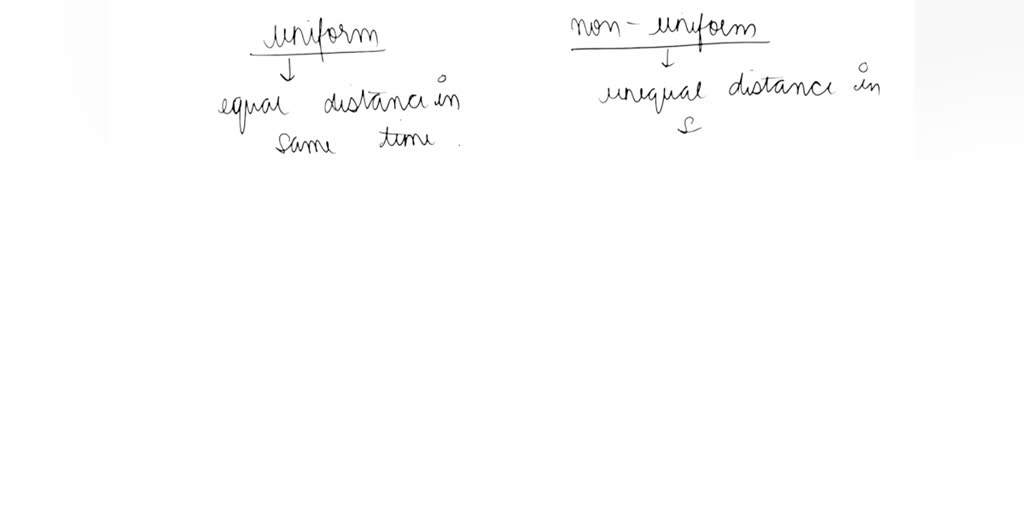 uniform
non-uniform
equal distance in
same time.
unequal distance in
s